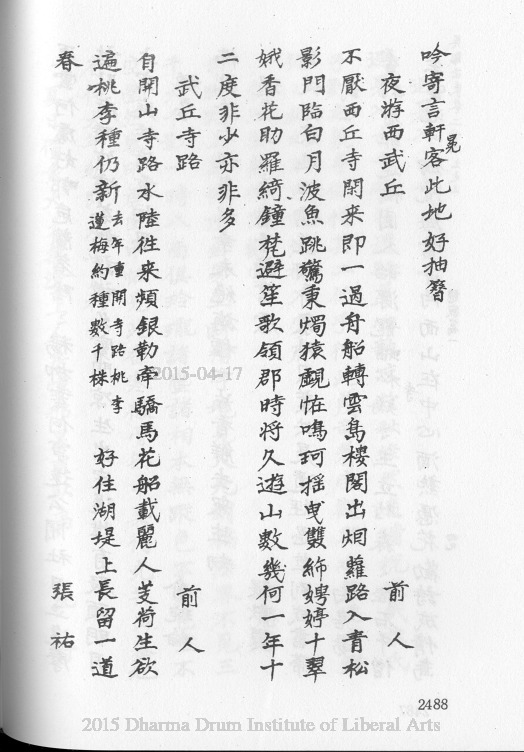 吟寄言軒冕客此地好抽簪
夜游西武丘 前人
不厭西丘寺閒来即一過舟船轉雲島樓閣出烟蘿路入青松
影門臨白月波魚跳驚秉燭猿覷恠鳴珂揺曳雙娉婷十翠
娥香花助羅綺鐘梵避笙歌領郡時将久遊山數幾何一年十
二度非少亦非多
武丘寺路 前人
自開山寺路水陸往来頻銀勒牽驕馬花船載麗人芰荷生欲
遍桃李種仍新去年重開寺路桃李蓮梅約種數千株 好住湖堤上長留一道
春 張祐
2488
2015-04-17
2015 Dharma Drum Institute of Liberal Arts